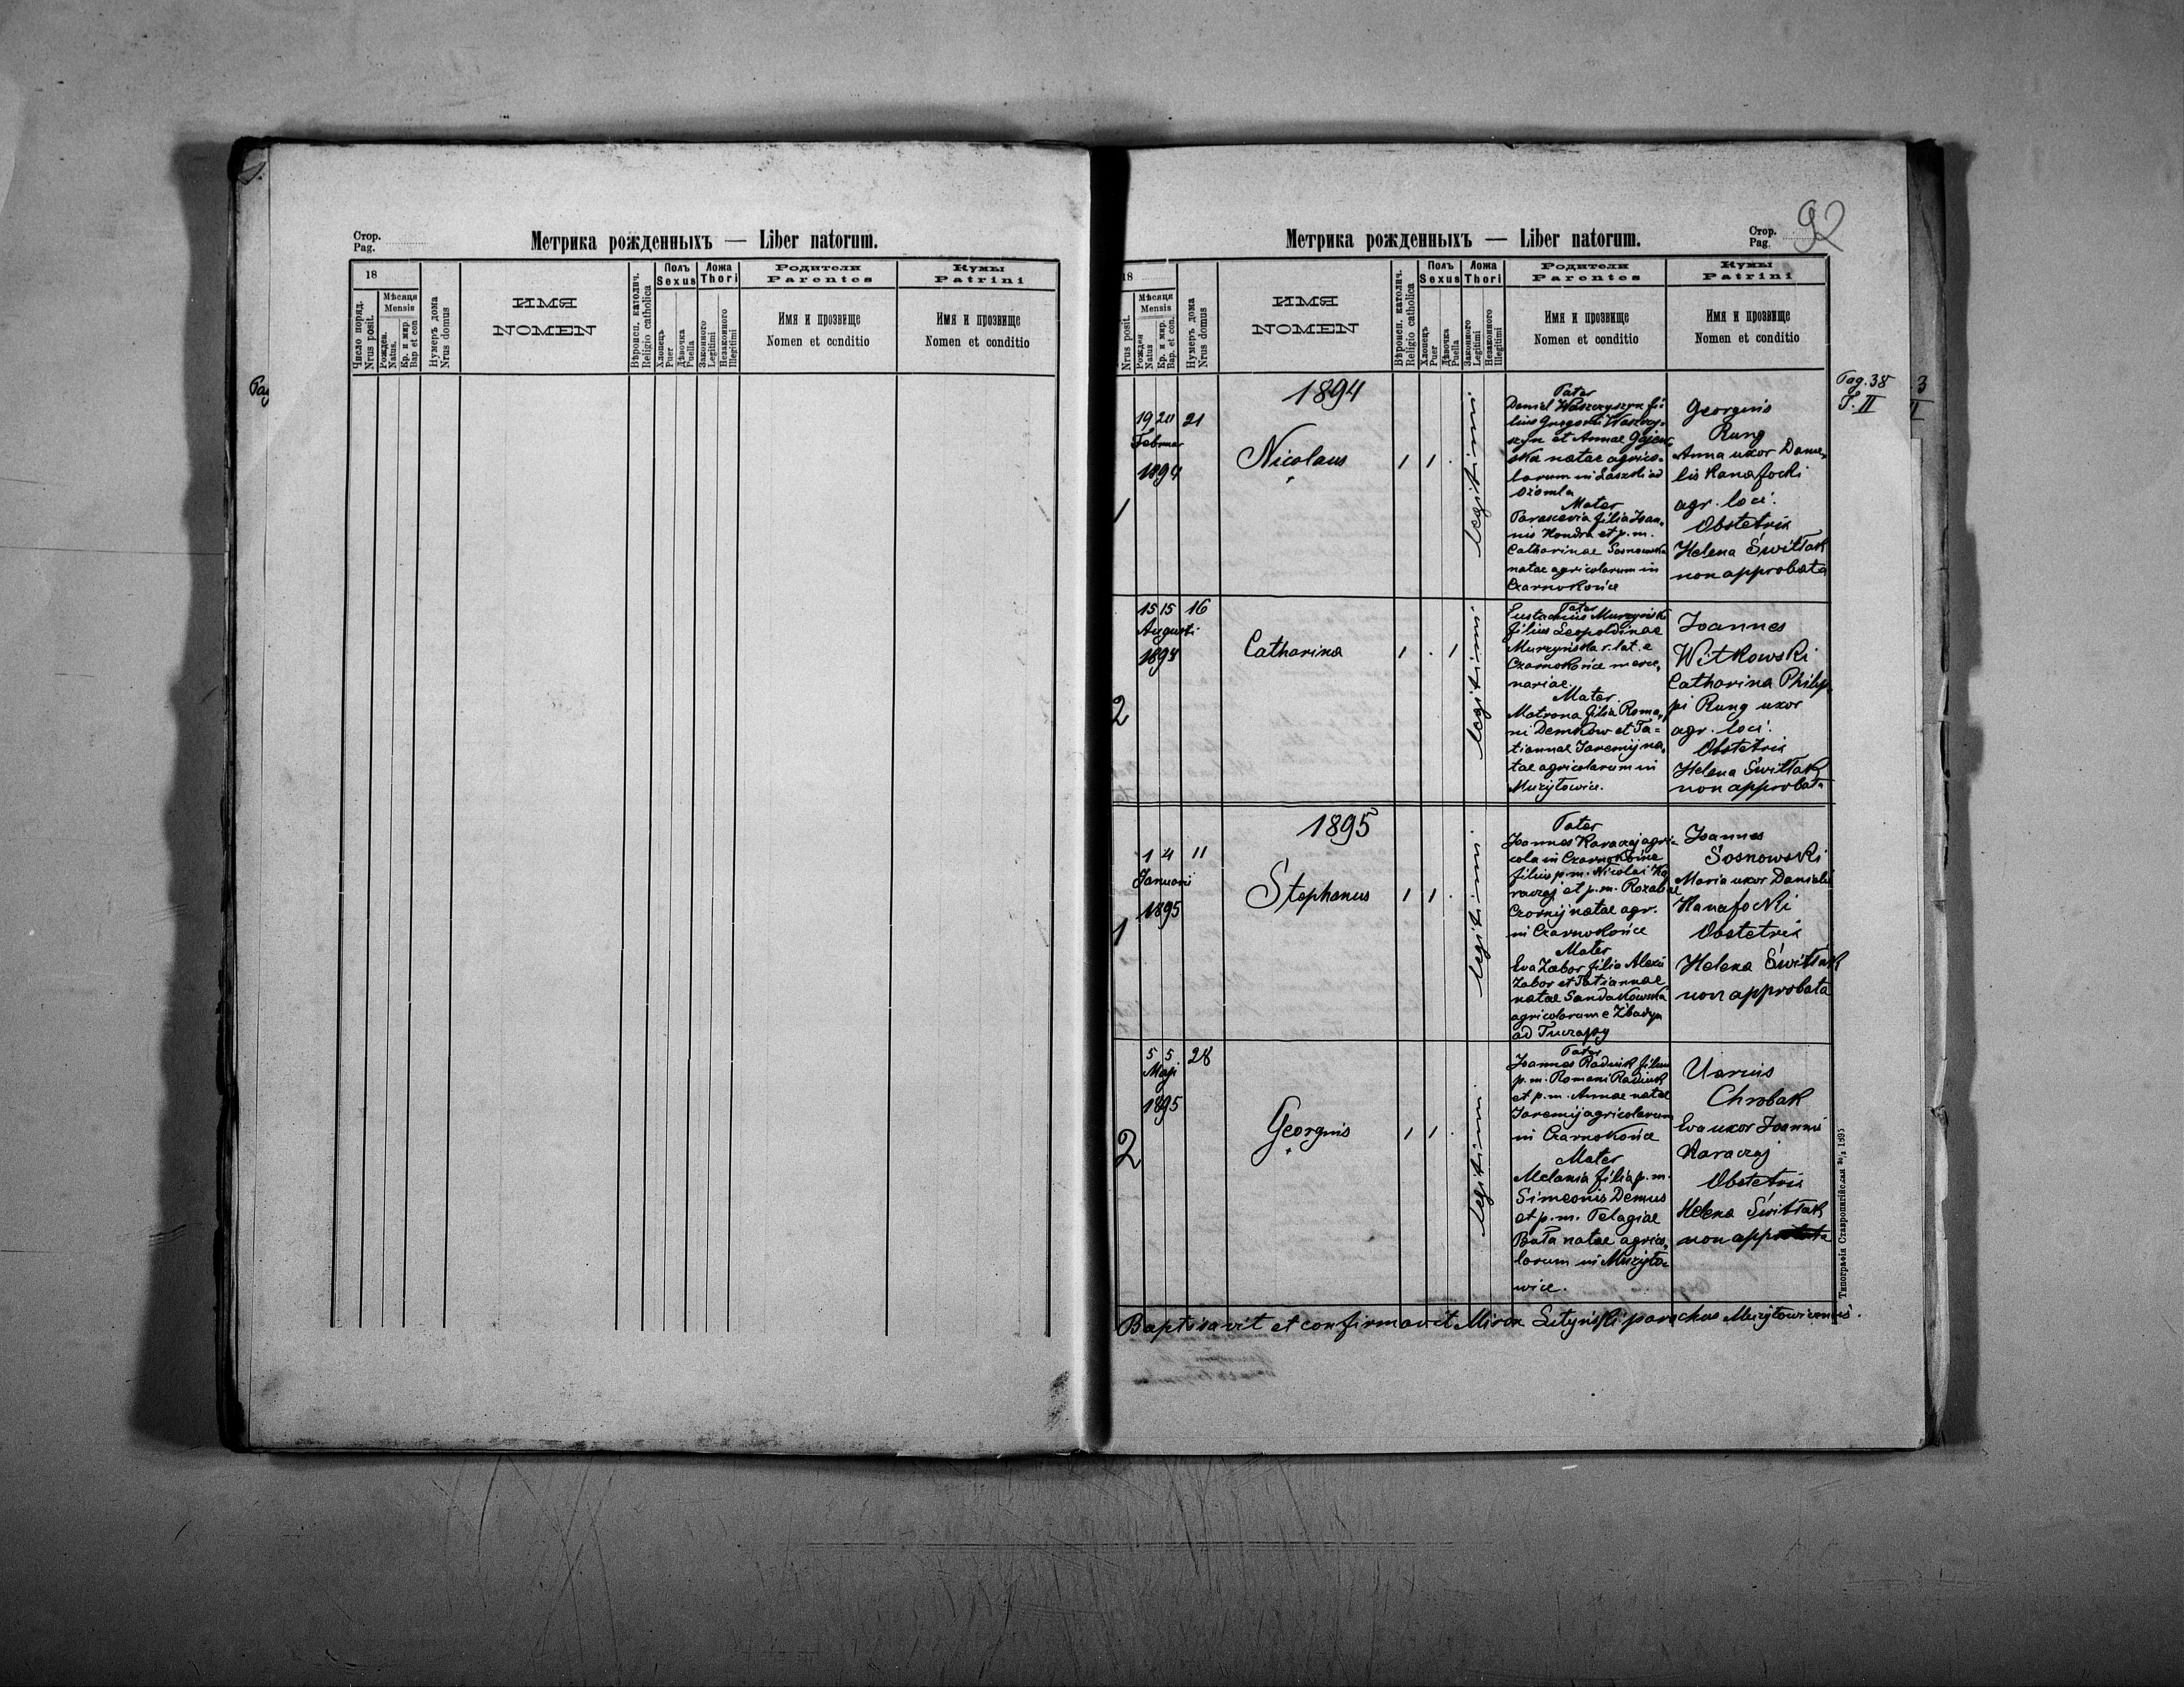 Стор.
Pag.
Метрика рожденныхъ — Liber natorum.
18
Число поряд.
Nrus posit.
Мѣсяця
Mensis
Рожден.
Natus.
Кр. и мир.
Bap et con
Нумеръ дома
Nrus domus
ИМЯ
NOMEN
Вѣроисп. католич.
Religio catholica
Полъ
Sexus
Хлопецъ
Puer
Дѣвочка
Puella
Ложа
Thori
Законного
Legitimi
Незаконного
Illegitimi
Родители
Parentes
Имя и прозвище
Nomen et conditio
Кумы
Patrini
Имя и прозвище
Nomen et conditio
92
Метрика рожденныхъ — Liber natorum.
Стор.
Pag.
18
Nrus posit.
Мѣсяця
Mensis
Рожден
Natus
Кр. и мир.
Bap. et con.
Нумеръ дома
Nrus domus
ИМЯ
NOMEN
Вѣроисп. католич.
Religio catholica
Полъ
Sexus
Хлопецъ
Puer
Дѣвочка
Puella
Ложа
Thori
Законного
Legitimi
Незаконного
Illegitimi
Родители
Parentes
Имя и прозвище
Nomen et conditio
Кумы
Patrini
Имя и прозвище
Nomen et conditio
Pag. 38
T. II
1894
1
19 20 21
Februar
1894
Nicolaus
1 1 .
legitimi
Pater
Daniel Waszczyszyn fi-
lius Gregorii Waszczy-
szyn et Annae
ska natae agrico-
larum in Laszki ad
Ożomla
Mater
Parascevia filia Joan-
nis Hondra et p.m.
Catharinae Sosnowska
natae agricolarum in
Czarnokońce
Georgius
Rung
Anna uxor Danie-
lis Kanafocki
agr. loci.
Obstetrix
Helena Świttak
non approbata
2
15 15 16
Augusti
1894
Catharina
1 . 1
legitimi
Pater
Eustachius Murzyński
filius Leopoldinae
Murzyńska r. lat. e
Czarnokońce merce-
nariae.
Mater
Matrona filia Roma-
ni Demków et Ta-
tiannae Jaremij na-
tae agricolarum in
Mużyłowice.
Joannes
Witkowski
Catharina Philip-
pi Rung uxor
agr. loci.
Obstetrix
Helena Świttak
non approbata
1895
1
1 4 11
Januarii
1895
Stephanus
1 1 .
legitimi
Pater
Joannes Karaczaj agri-
cola in Czarnokońce
filius p.m. Nicolai Ka-
raczaj et p.m. Rozaliae
Czornij natae agr.
in Czarnokońce
Mater
Eva Zabor filia Alexii
Zabor et Tatiannae
natae Sandakowska
agricolarum e Zbadyn
ad Tuczapy
Joannes
Sosnowski
Maria uxor Danielis
Kanafocki
Obstetrix
Helena Świttak
non approbata
2
5 5 28
Maji
1895
Georgius
1 1 .
legitimi
Pater
Joannes Radiuk filius
p.m. Romani Radiuk
et p.m. Annae natae
Jaremij agricolarum
in Czarnokońce
Mater
Melania filia p.m.
Simeonis Demus
et p.m. Pelagiae
Bała natae agrico-
larum in Mużyło-
wice.
Chrobak
Eva uxor Joannis
Karaczaj
Obstetrix
Helena Świttak
non approbata
Baptisavit et confirmavit Miron Letyński parochus Mużyłowicensis.
Типографія Ставропигійская 1895